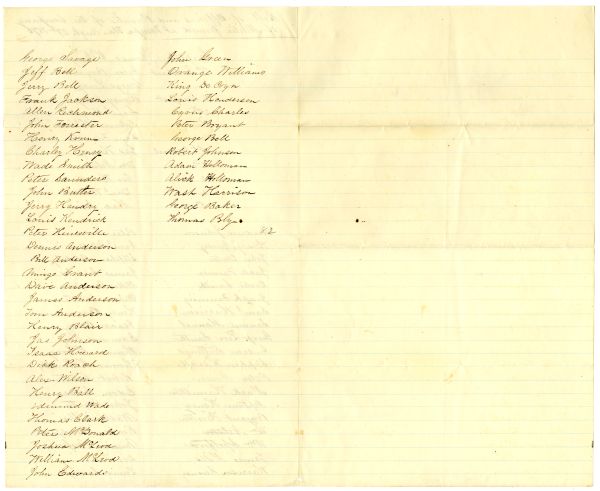 George Savage
Jeff Bell
Jerry Bell
Frank Jackson
Allen Richmond
John Forrester
Henry
Charley Henry
Wade Smith
Peter Saunders
John Butler
Jerry Hendry
Louis Kendrick
Peter Hinesville
Dennis Anderson
Bill Anderson
Mingo Grant
Dave Anderson
James Anderson
Tom Anderson
Henry Blair
Jas Johnson
Isaac Howard
Dick Roach
Alex Wilson
Henry Ball
Edmund Wade
Thomas Clark
Peter McDonald
Joshua McLeod
William McLeod
John Edwards
John Green
Orange Williams
King
Louis Henderson
Cyrus Charles
Peter Bryant
George Bell
Robert Johnson
Adam Holloman
Alick Holloman
Wash Harrison
George Baker
Thomas Bly
82